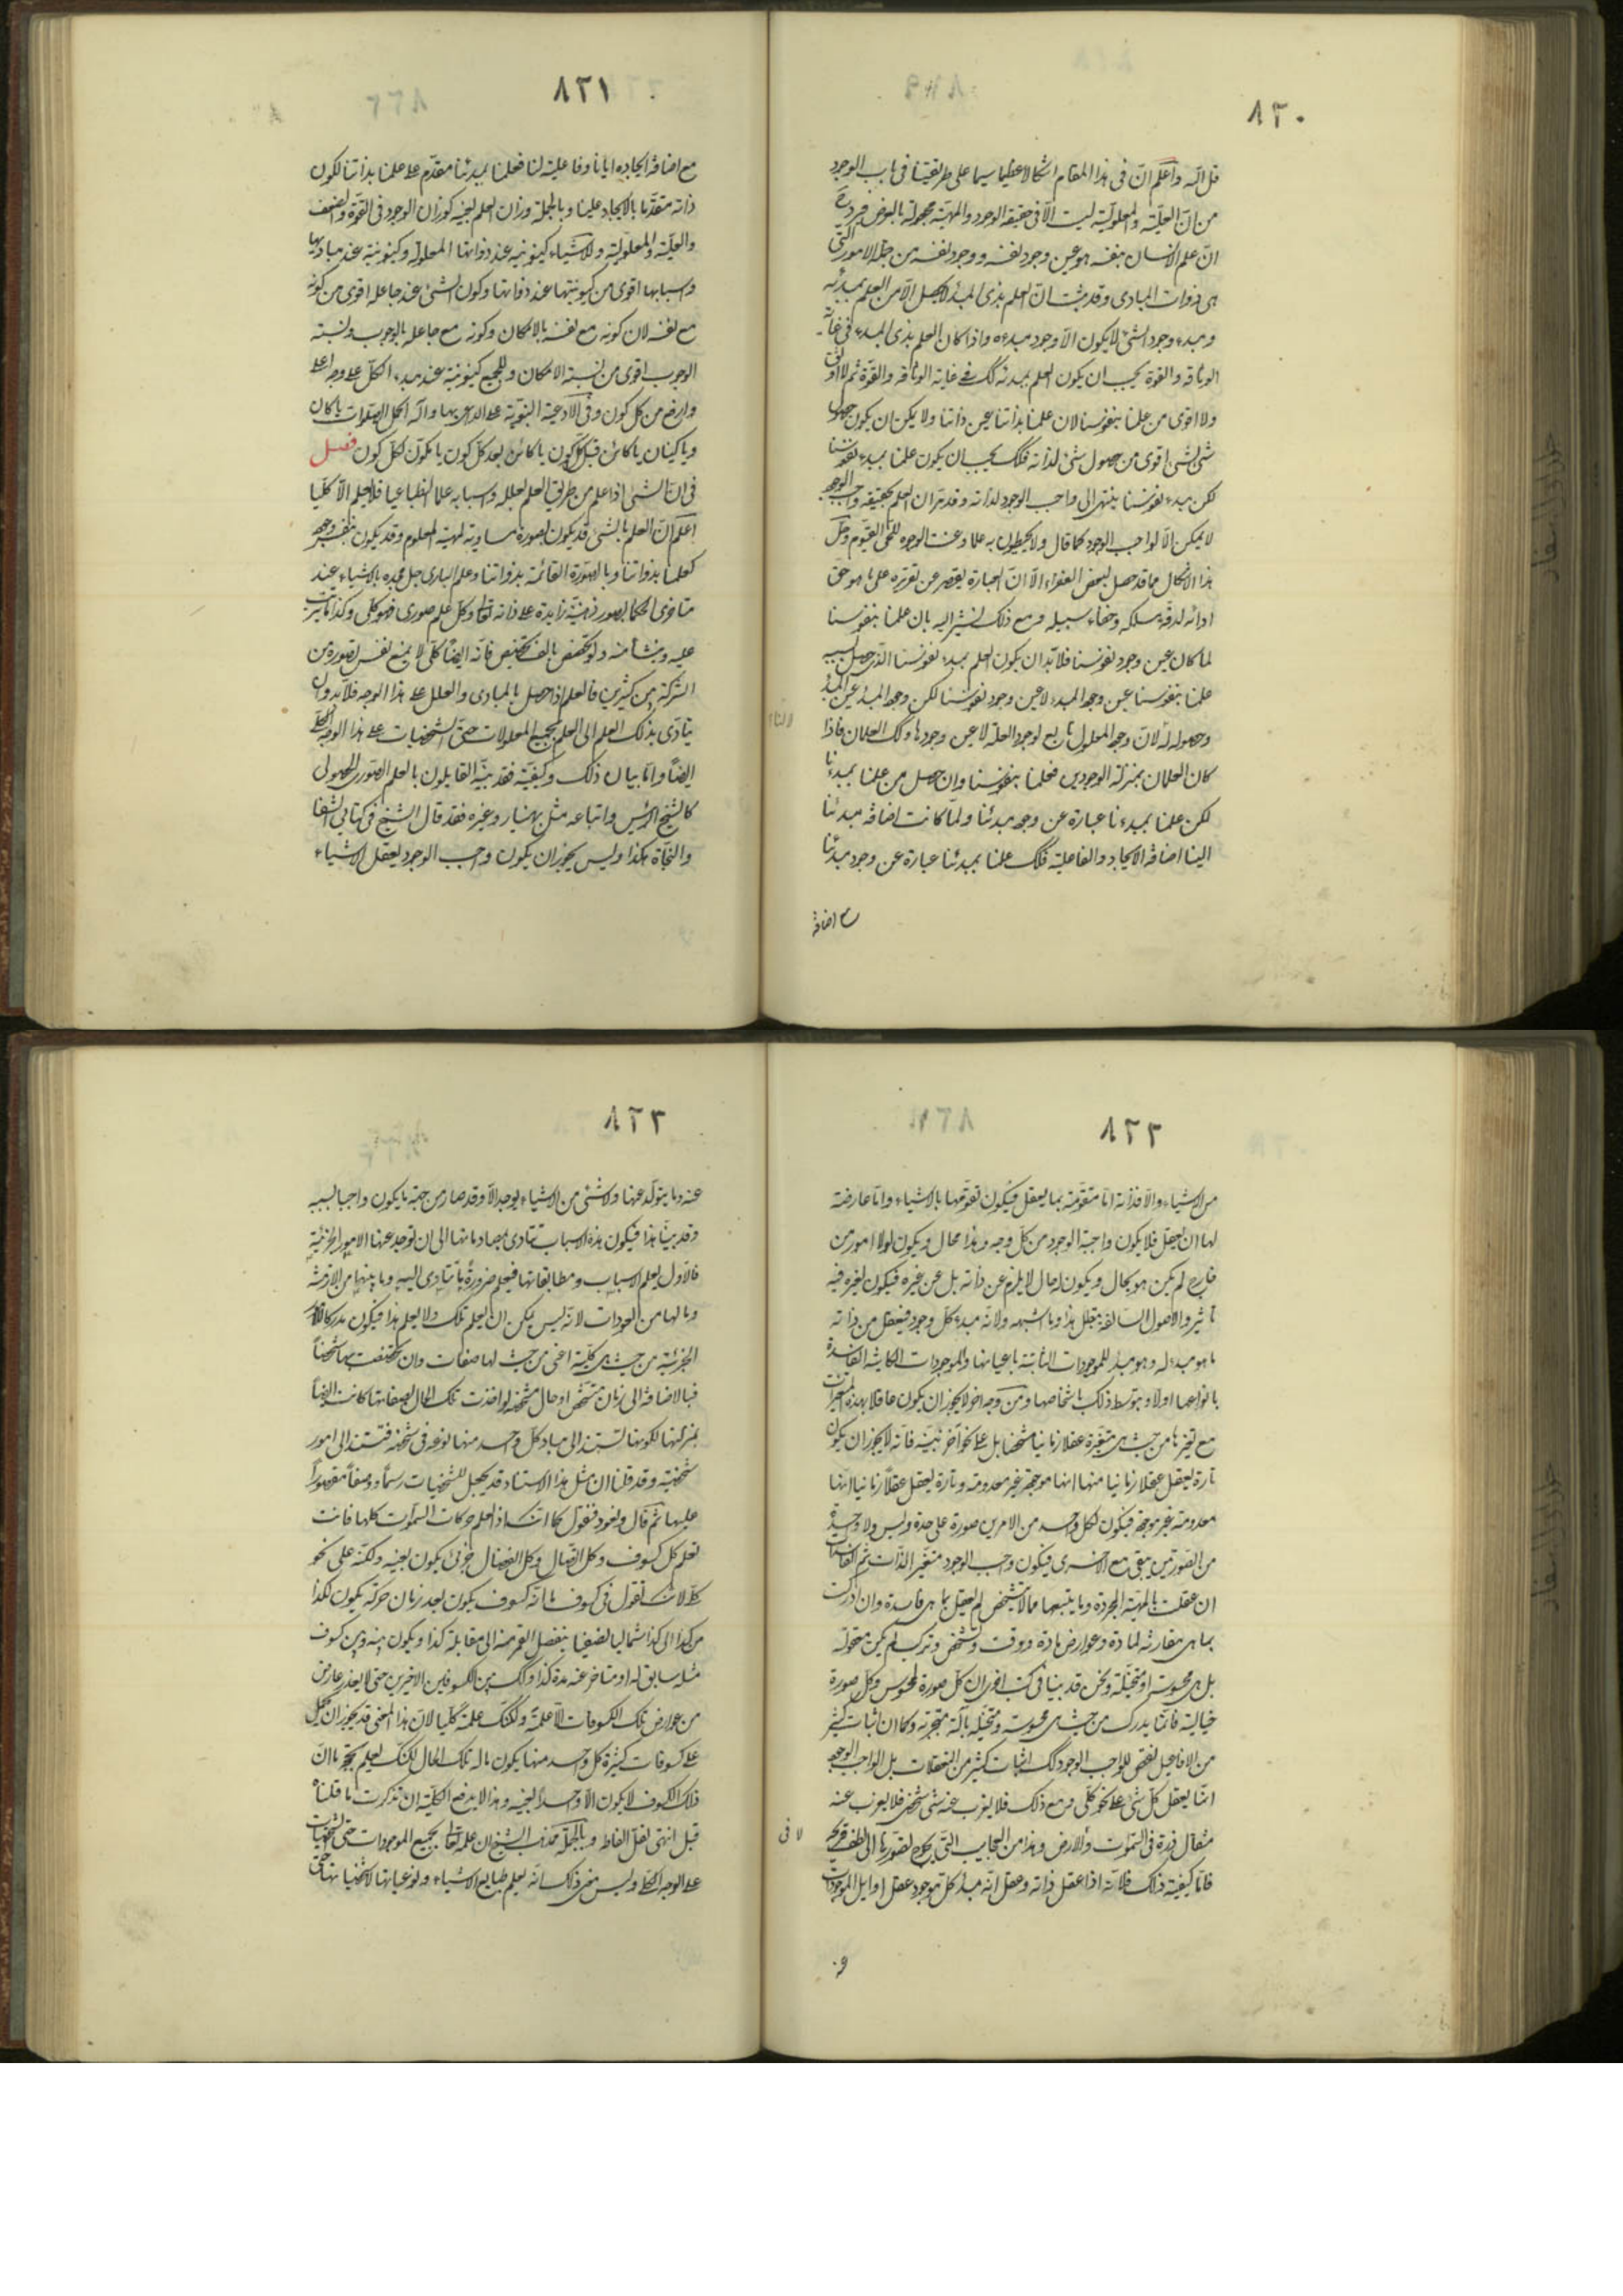 ٨٢٠
قل انه واعلم ان فى هذا المقام اشكالا عظيما سيما على طريقتنا فى باب الوجود
من ان العلية والمعلولية ليست الا فى حقيقة الوجود والمهية مجعولة بالعرض
ان علم الانسان بنفسه هو عين وجود نفسه ووجود نفسه من جملة الامور التى
هى ذوات المبادى وقد ثبت ان العلم بذى المبدء لا يحصل الا من العلم بمبدئه
ومبدء وجود الشئ لا يكون الا وجود مبدءه واذا كان العلم بذى المبدء فى غاية
الوثاقة والقوة يجب ان يكون العلم بمبدئه كك فى غاية الوثاقة والقوة ثم لا اوثق
ولا اقوى من علمنا بنفوسنا لان علمنا بذاتنا عين ذاتنا ولا يمكن ان يكون حصول
شئ لشئ اقوى من حصول شئ لذاته فكك يجب ان يكون علمنا بمبدء نفوسنا
لكن مبدء نفوسنا ينتهى الى واجب الوجود لذاته وقد تقرر ان العلم بحقيقة واجب الوجود
لا يمكن الا لواجب الوجود كما قال ولا يحيطون به علما وعنت الوجوه للحى القيوم وحل
هذا الاشكال مما قد حصل لبعض الفقراء الا ان العبارة يقصر عن تقريره على ما هو حق
ادائه لدقة مسلكه وخفاء سبيله ومع ذلك نشير اليه بان علمنا بنفوسنا
لما كان عين وجود نفوسنا فلا بد ان يكون العلم بمبدء نفوسنا الذى حصل بسببه
علمنا بنفوسنا عين وجود المبدء لا عين وجود نفوسنا لكن وجود المبدء عين المبدء
وحصوله له لان وجود المعلول تابع لوجود العلة لا عين وجودها وكك العلمان فاذا
كان العلمان بمنزلة الوجودين فعلمنا بنفوسنا وان حصل من علمنا بمبدئنا
لكن علمنا بمبدءنا عبارة عن وجود مبدئنا ولما كانت اضافة مبدئنا
الينا اضافة الايجاد والفاعلية فكك علمنا بمبدئنا عبارة عن وجود مبدئنا
مع اضافة
٨٢١
مع اضافة ايجاده ايانا وفاعليته لنا فعلمنا بمبدئنا مقدم على علمنا بذاتنا لكون
ذاته متقدما بالايجاد علينا وبالجملة وزان العلم بعينه كوزان الوجود فى القوة والضعف
والعلية والمعلولية وللاشياء كينونية عند ذواتها المعلولة وكينونية عند مباديها
واسبابها اقوى من كينونتها عند ذواتها وكون الشئ عند جاعله اقوى من كونه
مع نفسه لان كونه مع نفسه بالامكان وكونه مع جاعله بالوجوب ونسبة
الوجوب اقوى من نسبة الامكان وللجميع كينونية عند مبدء الكل على وجه اعلى
وارفع من كل كون وفى الادعية النبوية على الداعى بها وآله اكمل الصلوات يا كان
ويا كينان يا كائن قبل كل كون يا كائن بعد كل كون يا مكون لكل كون فصل
فى ان الشئ اذا علم من طريق العلم بعلله واسبابه علما انطباعيا فلا يعلم الا كليا
اعلم ان العلم بالشئ قد يكون بصورة مساوية لمهية المعلوم وقد يكون بنفس وجوده
كعلمنا بذواتنا وبالصورة القائمة بذواتنا وعلم البارى جل مجده بالاشياء عند
متاخرى الحكما بصور ذهنية زايدة على ذاته تعالى وكل علم صورى فهو كلى وكذا ما يترتب
عليه وينشأ منه ولو تخصص بالف تخصيص فانه ايضا كلى لا يمنع نفس تصوره من
الشركة بين كثيرين فالعلم اذا حصل بالمبادى والعلل على هذا الوجه فلا بد وان
يتادى بذلك العلم الى العلم بجميع المعلولات حتى الشخصيات على هذا الوجه الكلى
ايضا واما بيان ذلك وكيفيته فقد بينه القايلون بالعلم الصورى الحصولى
كالشيخ الرئيس واتباعه مثل بهمنيار وغيره فقد قال الشيخ فى كتابى الشفا
والنجاة هكذا وليس يجوز ان يكون واجب الوجود يعقل الاشياء
٨٢٢
من الاشياء والا فذاته اما متقومة بما يعقل فيكون تقومها بالاشياء واما عارضة
لها ان يعقل فلا يكون واجبة الوجود من كل وجه وهذا محال ويكون لولا امور من
خارج لم يكن هو بحال ويكون له حال لا يلزم عن ذاته بل عن غيره فيكون لغيره فيه
تاثير والاصول السالفة تبطل هذا وما اشبهه ولانه مبدء كل وجود فيعقل من ذاته
ما هو مبدء له وهو مبدء للموجودات الثابتة باعيانها والموجودات الكاينة الفاسدة
بانواعها اولا وبتوسط ذلك باشخاصها ومن وجه اخر لا يجوز ان يكون عاقلا بهذه المتغيرات
مع تغيرها من حيث هى متغيرة عقلا زمانيا مشخصا بل على نحو آخر نبينه فانه لا يجوز ان يكون
تارة يعقل عقلا زمانيا منها انها موجودة غير معدومة وتارة يعقل عقلا زمانيا انها
معدومة غير موجودة فيكون لكل واحد من الامرين صورة على حدة وليس ولا واحدة
من الصورتين يبقى مع الاخرى فيكون واجب الوجود متغير الذات ثم الفاسدات
ان عقلت بالمهية المجردة وما يتبعها مما لا يتشخص لم يعقل بما هى فاسدة وان ادركت
بما هى مقارنة لمادة وعوارض مادة ووقت وتشخص وتركب لم يكن معقولة
بل هى محسوسة او متخيلة ونحن قد بينا فى كتب اخرى ان كل صورة لمحسوس وكل صورة
خيالية فانما يدرك من حيث هى محسوسة ومتخيلة بآلة متجزية وكما ان اثبات كثير
من الافاعيل نقص لواجب الوجود كك اثبات كثير من التعقلات بل الواجب الوجود
انما يعقل كل شئ على نحو كلى ومع ذلك فلا يعزب عنه شئ شخصى فلا يعزب عنه
مثقال ذرة فى السموات ولا فى الارض وهذا من العجايب التى يحوج تصورها الى لطف قريحة
فاما كيفية ذلك فلانه اذا عقل ذاته وعقل انه مبدء كل موجود عقل اوايل الموجودات
٨٢٣
عنه وما يتولد عنها ولا شئ من الاشياء يوجد الا وقد صار من جهة ما يكون واجبا بسببه
وقد بينا هذا فيكون هذه الاسباب يتادى بمصادماتها الى ان توجد عنها الامور الجزئية
فالاول يعلم الاسباب ومطابقاتها فيعلم ضرورة ما يتادى اليه وما بينها من الازمنة
وما لها من العودات لانه ليس يمكن ان يعلم تلك ولا يعلم هذا فيكون مدركا للامور
الجزئية من حيث هى كلية اعنى من حيث لها صفات وان تخصصت بها شخصا
فبالاضافة الى زمان متشخص او حال متشخصة لو اخذت تلك الحال بصفاتها كانت ايضا
بمنزلتها لكونها تستند الى مباد كل واحد منها نوعه فى شخصه فتستند الى امور
شخصية وقد قلنا ان مثل هذا الاستناد قد يجعل للشخصيات رسما ووصفا مقصورا
عليها ثم قال ونعود فنقول كما انك اذ تعلم حركات السموات كلها فانت
تعلم كل كسوف وكل اتصال وكل انفصال جزئى يكون بعينه ولكنه على نحو
كلى لانك تقول فى كسوف ما انه كسوف يكون بعد زمان حركة يكون لكذا
من كذا الى كذا شماليا نصفيا ينفصل القمر منه الى مقابلة كذا ويكون بينه وبين كسوف
مثله سابق له او متاخر عنه مدة كذا وكك بين الكسوفين الاخيرين حتى لا يعذر عارض
من عوارض تلك الكسوفات الا علمته ولكنك علمته كليا لان هذا المعنى قد يجوز ان يحمل
على كسوفات كثيرة كل واحد منها يكون حاله تلك الحال لكنك تعلم بحجة ما ان
ذلك الكسوف لا يكون الا واحدا بعينه وهذا لا يدفع الكلية ان تذكرت ما قلناه
قبل انتهى نقل الفاظه وبالجملة فمذهب الشيخ ان علمه تعالى بجميع الموجودات حتى الشخصيات
على الوجه الكلى وليس معنى ذلك انه يعلم طبايع الاشياء ونوعياتها لا شخصياتها